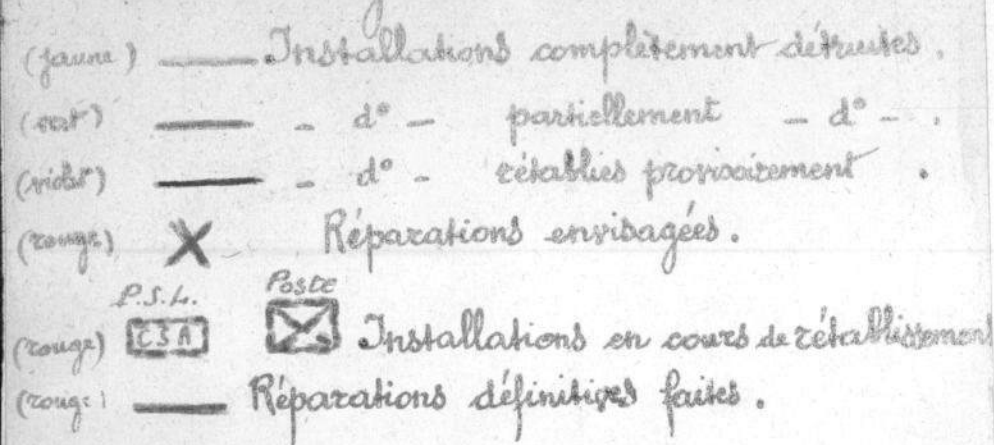 (jaune) Installations complètement détruites.
(vert) - d° - partiellement - d° - .
(violet) - d° - rétablies provisoirement .
(rouge) X Réparations envisagées.
P.S.L. Poste
(rouge) CSA Installations en cours de rétablissement
(rouge) Réparations définitives faites.